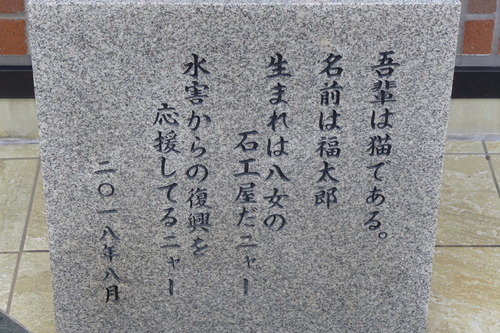 吾輩は猫である。
名前は福太郎
生まれは八女の
石工屋だニャー
水害からの復興を
応援してるニャー
二〇一八年八月